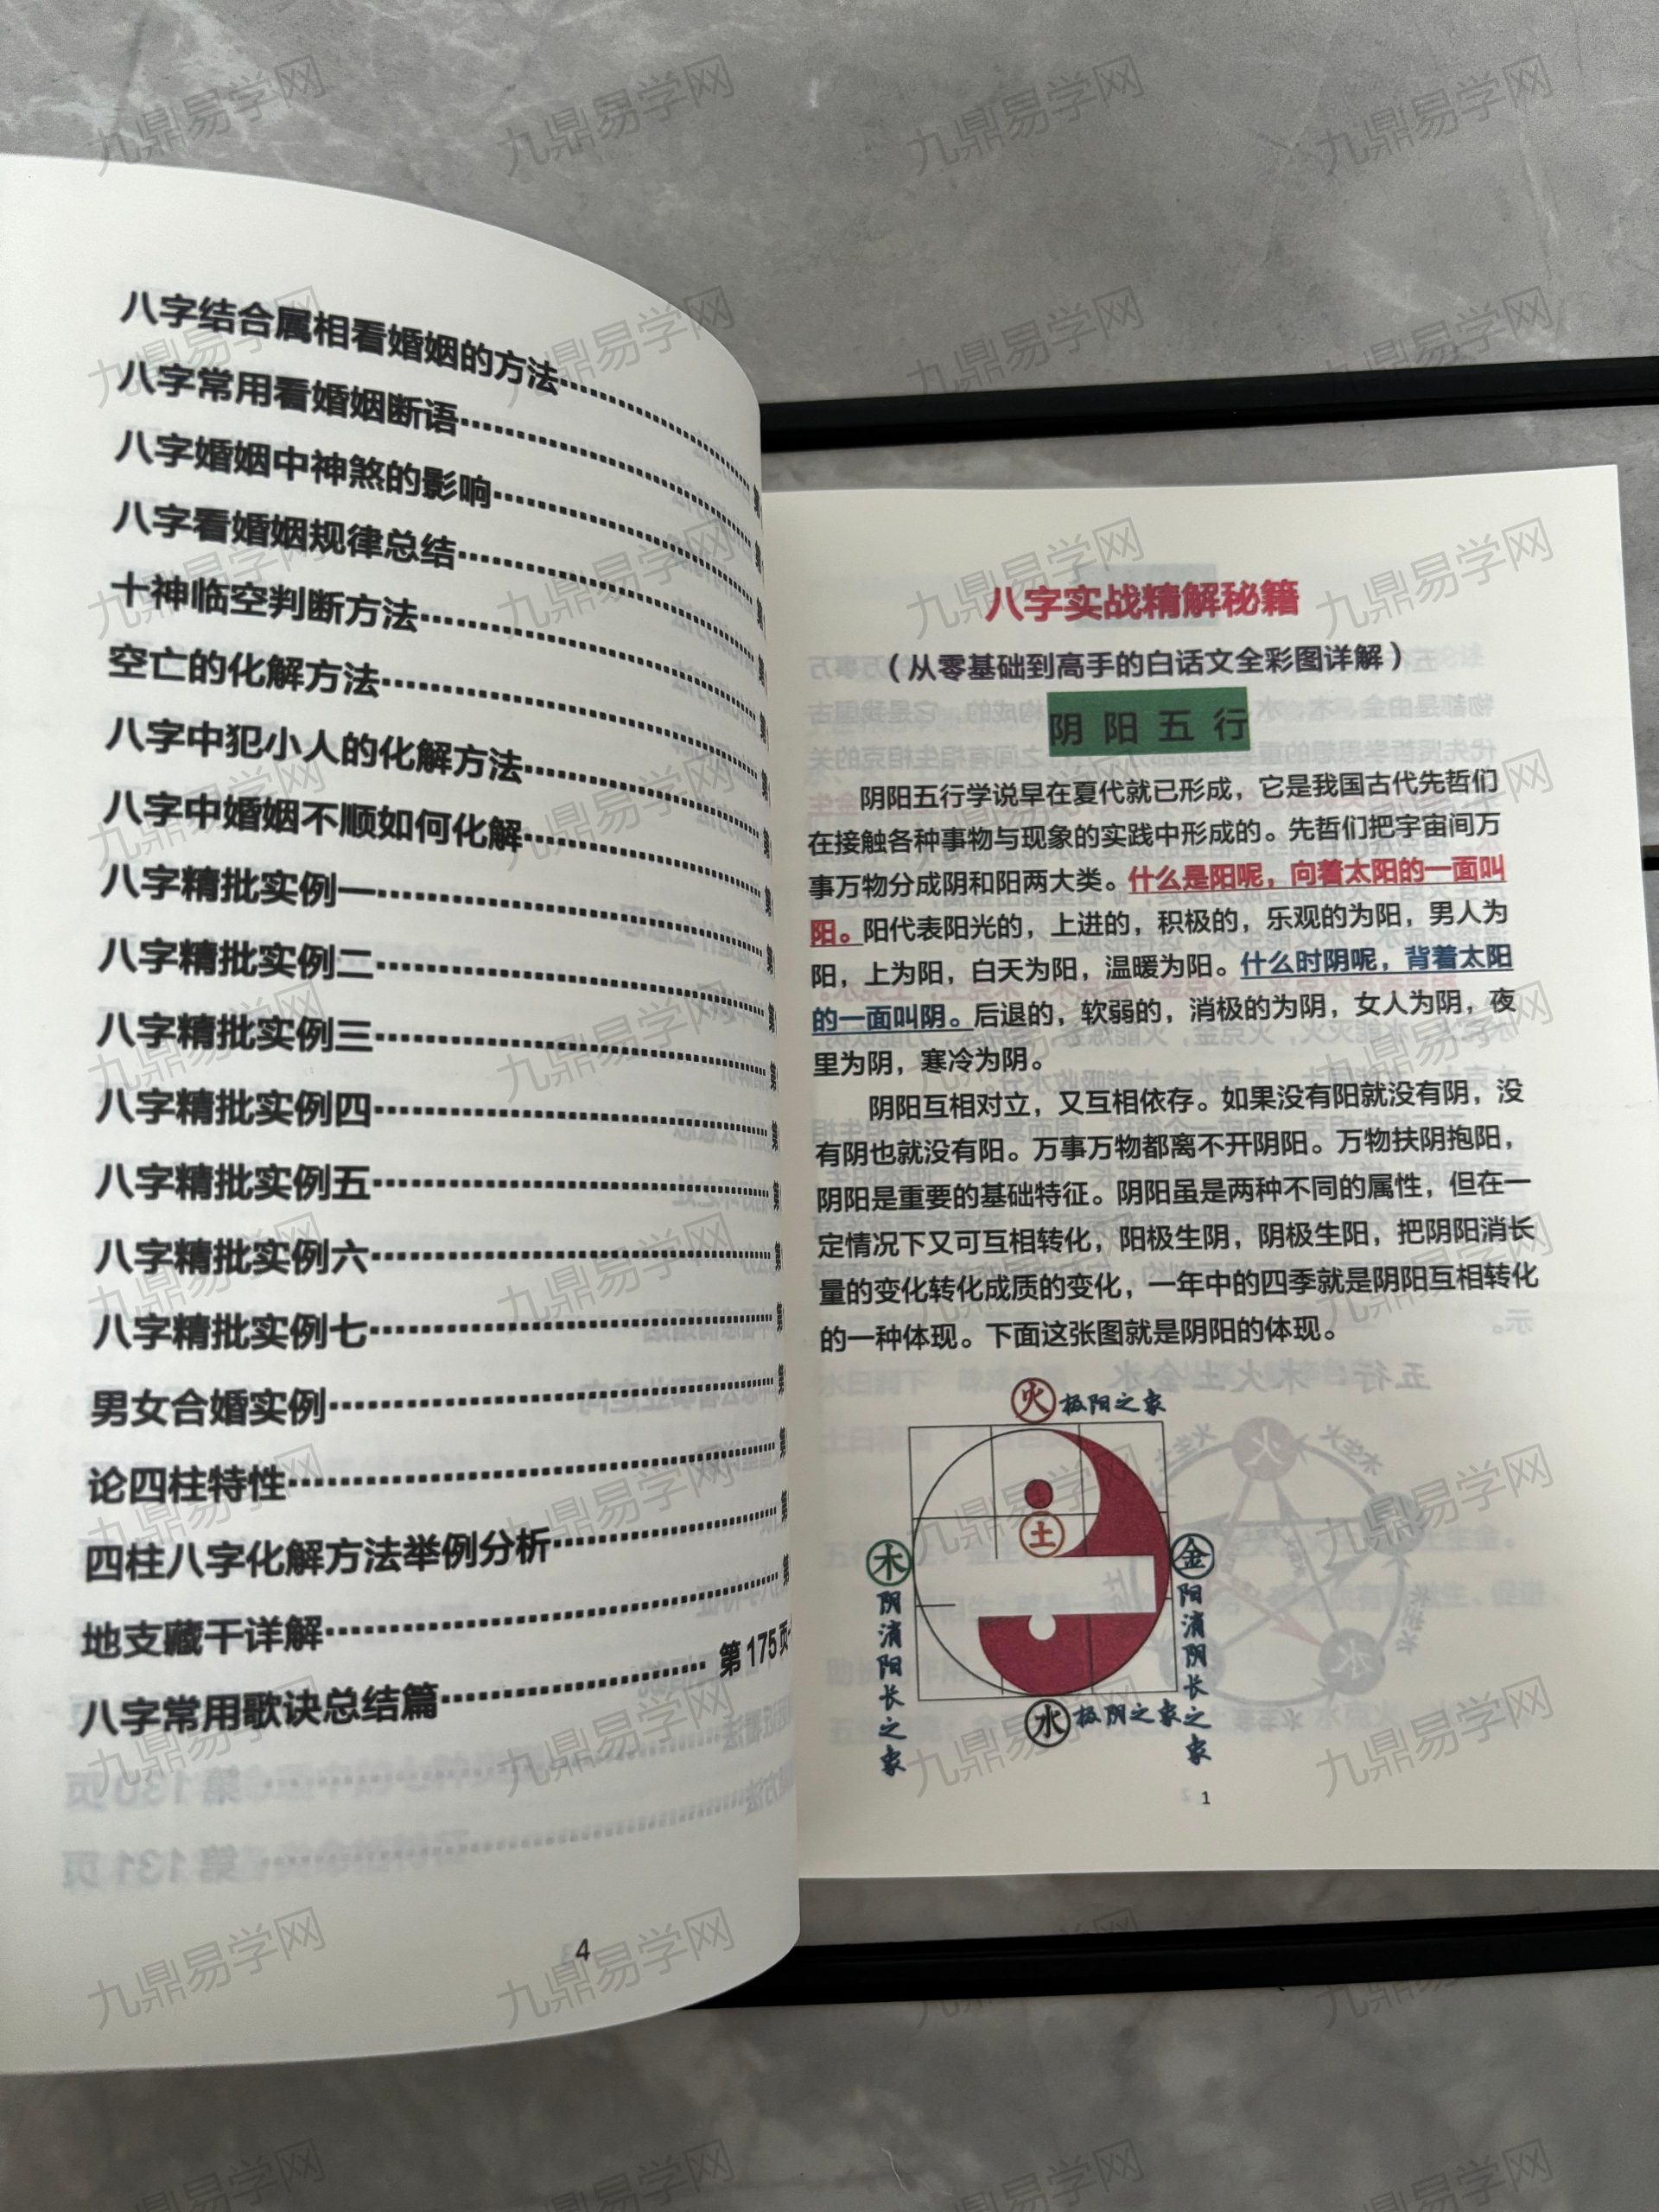 八字结合属相看婚姻的方法
八字常用看婚姻断语
八字婚姻中神煞的影响
八字看婚姻规律总结
十神临空判断方法
空亡的化解方法
八字中犯小人的化解方法
八字中婚姻不顺如何化解
八字精批实例一
八字精批实例二
八字精批实例三
八字精批实例四
八字精批实例五
八字精批实例六
八字精批实例七
男女合婚实例
论四柱特性
四柱八字化解方法举例分析
地支藏干详解
八字常用歌诀总结篇 第175页
4
八字实战精解秘籍
（从零基础到高手的白话文全彩图详解）
阴阳五行
阴阳五行学说早在夏代就已形成，它是我国古代先哲们
在接触各种事物与现象的实践中形成的。先哲们把宇宙间万
事万物分成阴和阳两大类。什么是阳呢，向着太阳的一面叫
阳。阳代表阳光的，上进的，积极的，乐观的为阳，男人为
阳，上为阳，白天为阳，温暖为阳。什么时阴呢，背着太阳
的一面叫阴。后退的，软弱的，消极的为阴，女人为阴，夜
里为阴，寒冷为阴。
阴阳互相对立，又互相依存。如果没有阳就没有阴，没
有阴也就没有阳。万事万物都离不开阴阳。万物扶阴抱阳，
阴阳是重要的基础特征。阴阳虽是两种不同的属性，但在一
定情况下又可互相转化，阳极生阴，阴极生阳，把阴阳消长
量的变化转化成质的变化，一年中的四季就是阴阳互相转化
的一种体现。下面这张图就是阴阳的体现。
火 极阳之象
土
木 阴消阳长之象
金 阳消阴长之象
水 极阴之象
1
九鼎易学网